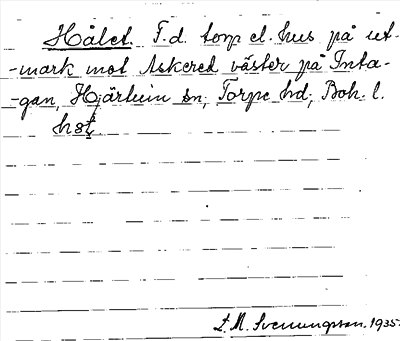 Hålet. F.d. torp el. hus på ut-
-mark mot Askered väster på Inta-
-gan, Hjärtum sn; Torpe hd; Boh. l.
hɷt
L. M. Svenungsson. 1935.